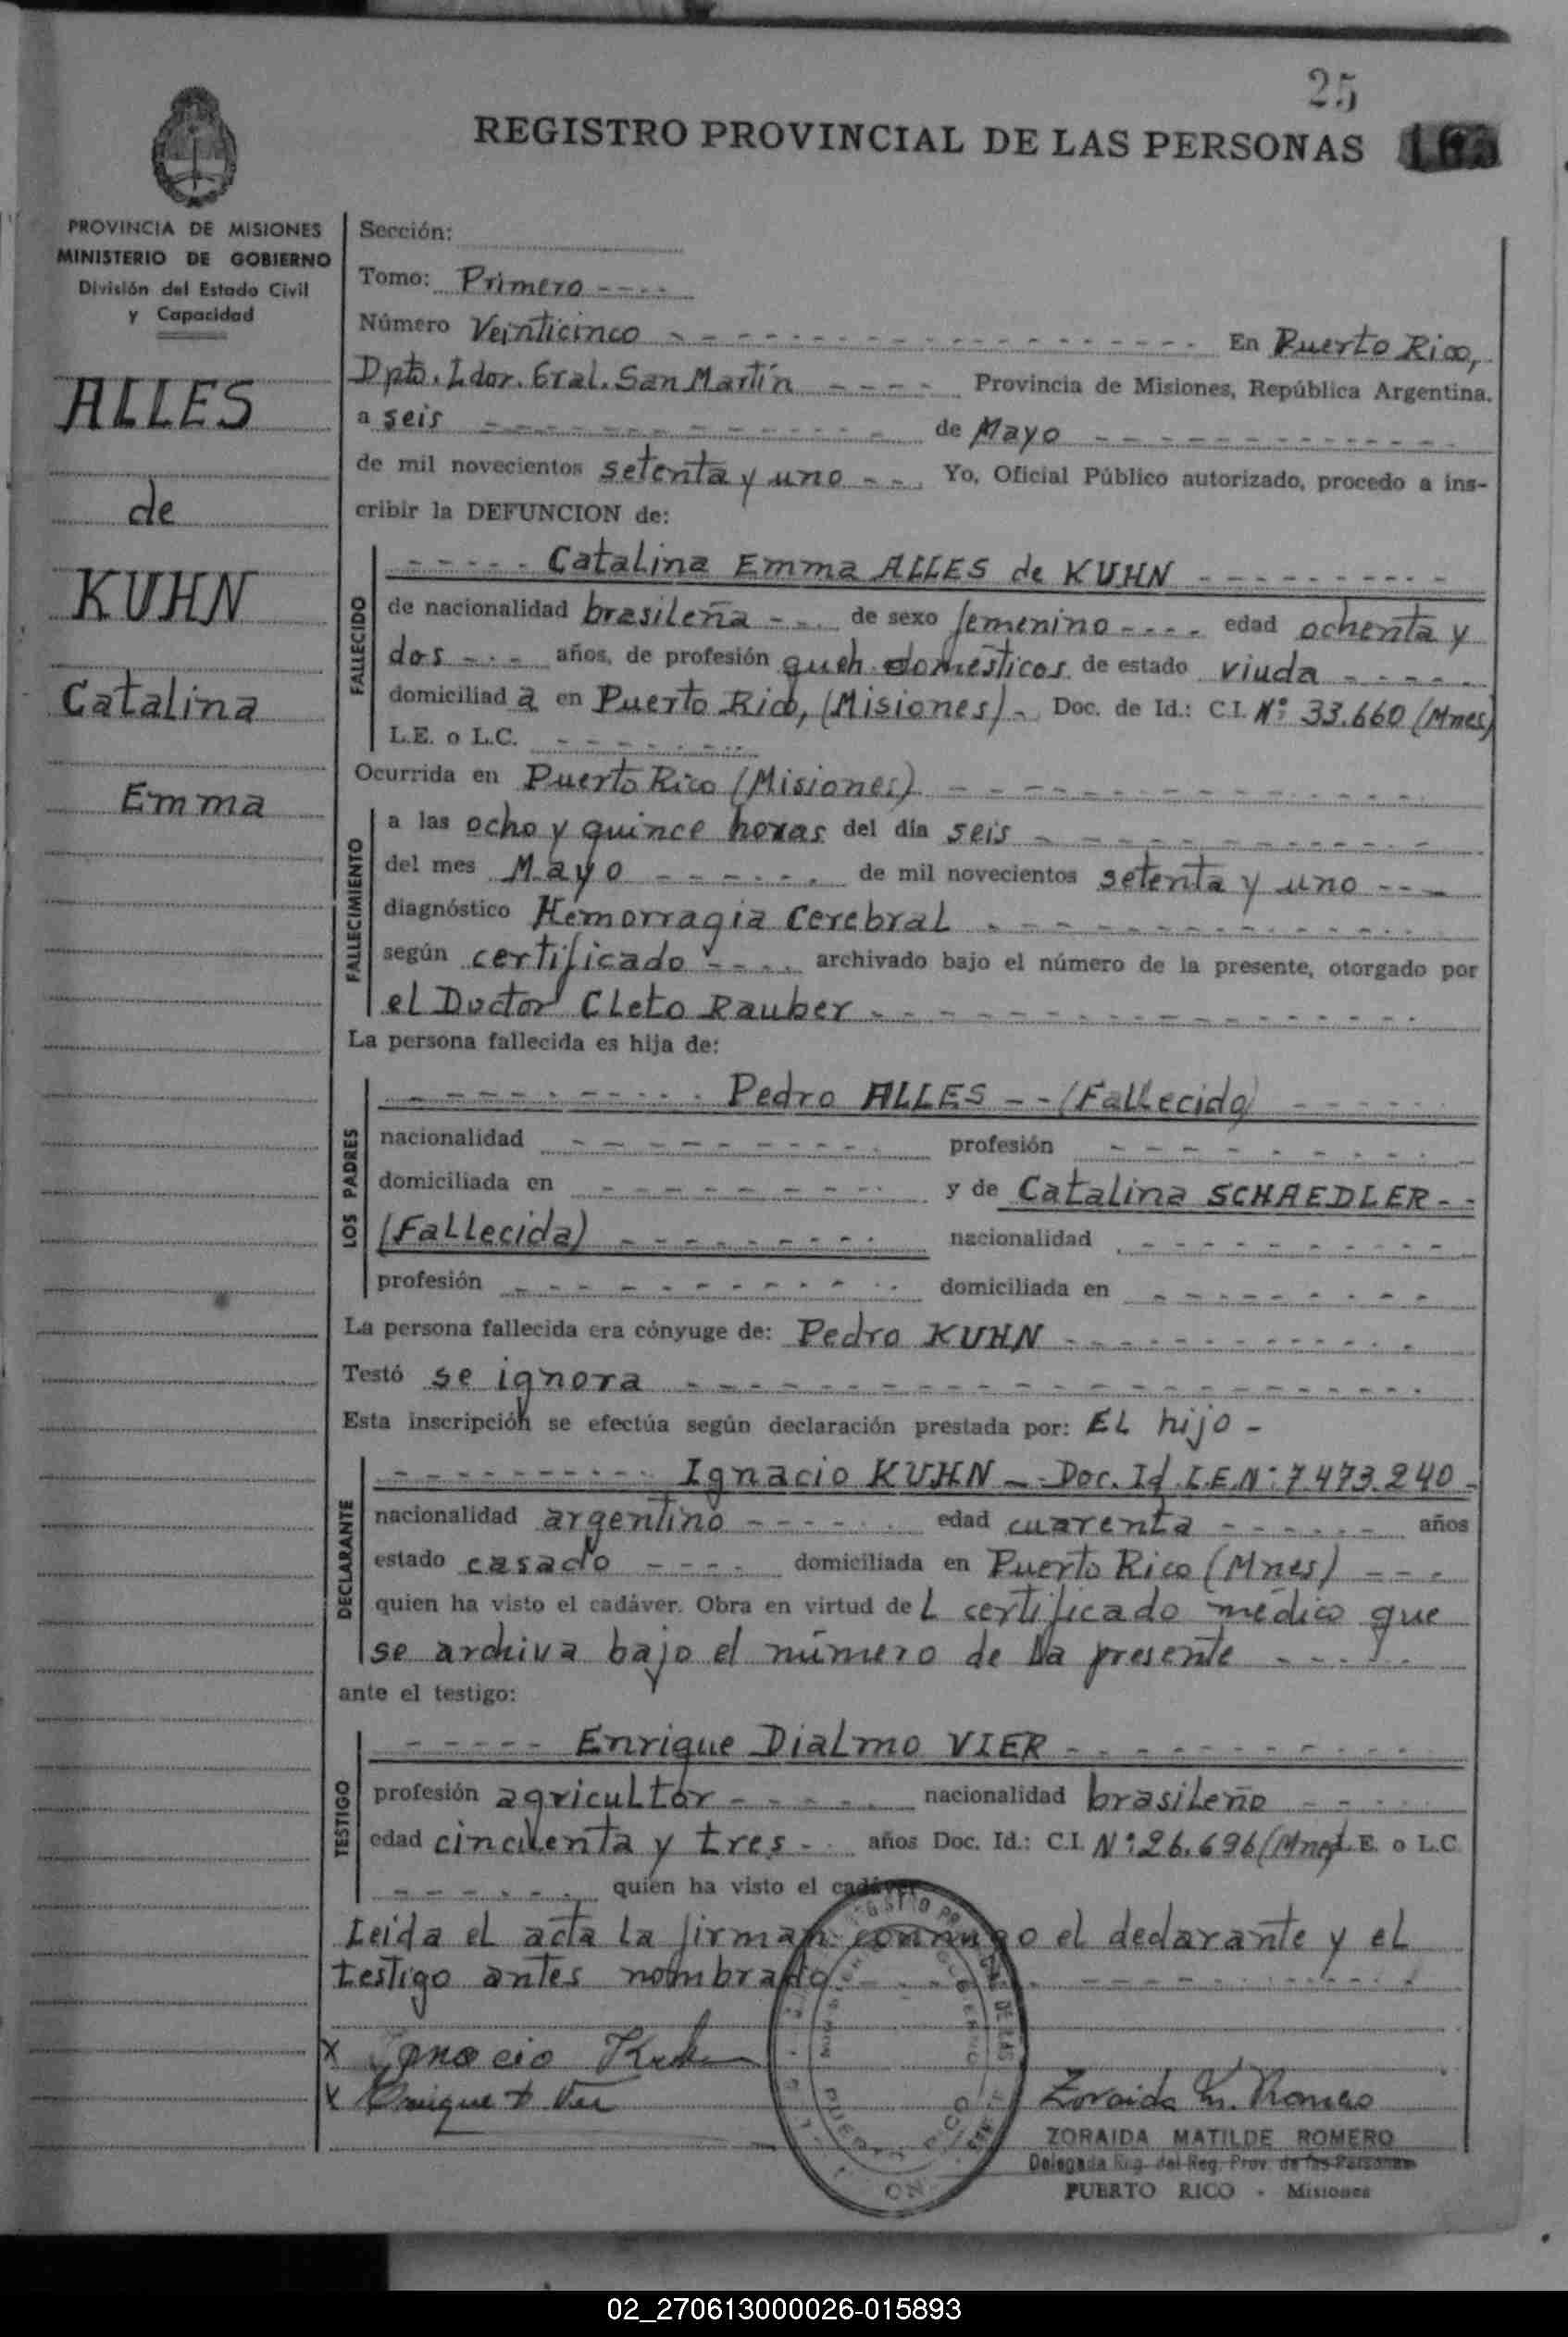 25
REGISTRO PROVINCIAL DE LAS PERSONAS
PROVINCIA DE MISIONES
MINISTERIO DE GOBIERNO
División del Estado Civil
y Capacidad
ALLES
de
KUHN
Catalina
Emma
Sección:
Tomo: Primero ----
Número Veinticinco - - - - En Puerto Rico,
Dpto. Ldor. Gral. San Martín - - - - Provincia de Misiones, República Argentina.
a seis - - - - de Mayo - - - -
de mil novecientos setenta y uno - - . Yo, Oficial Público autorizado, procedo a ins-
cribir la DEFUNCION de:
FALLECIDO
- - - - - Catalina Emma ALLES de KUHN - - - - -
de nacionalidad brasileña - - . de sexo femenino - - - - edad ochenta y
dos - - - años, de profesión queh. domésticos de estado viuda - - - - -
domiciliad a en Puerto Rico, (Misiones) - Doc. de Id.: C.I. Nº 33.660 (Mnes)
L.E. o L.C. - - - - -
Ocurrida en Puerto Rico (Misiones) - - - - -
FALLECIMIENTO
a las ocho y quince horas del día seis - - - - -
del mes Mayo - - - - - de mil novecientos setenta y uno - - -
diagnóstico Hemorragia Cerebral - - - - -
según certificado - - - - archivado bajo el número de la presente, otorgado por
el Doctor Cleto Rauber - - - - -
La persona fallecida es hija de:
LOS PADRES
- - - - - Pedro ALLES - - (Fallecido) - - - - -
nacionalidad - - - - - profesión - - - - -
domiciliada en - - - - - y de Catalina SCHAEDLER - -
(Fallecida) - - - - - nacionalidad - - - - -
profesión - - - - - domiciliada en - - - - -
La persona fallecida era cónyuge de: Pedro KUHN - - - - -
Testó se ignora - - - - -
Esta inscripción se efectúa según declaración prestada por: EL hijo -
DECLARANTE
- - - - - Ignacio KUHN - Doc. Id. L.E. Nº: 7.473.240 -
nacionalidad argentino - - - - - edad cuarenta - - - - - años
estado casado - - - - domiciliada en Puerto Rico (Mnes) - - -
quien ha visto el cadáver. Obra en virtud de L certificado médico que
se archiva bajo el número de La presente - - - - -
ante el testigo:
TESTIGO
- - - - - Enrique Dialmo VIER - - - - -
profesión agricultor - - - - - nacionalidad brasileño - - - - -
edad cincuenta y tres - - años Doc. Id.: C.I. Nº: 26.696 (Mnes) L.E. o L.C
- - - - - quien ha visto el cadáver
Leida el acta la firman conmigo el declarante y el
testigo antes nombrado - - - - -
x Ignacio Kuhn
x Enrique D Vier
Zoraida M. Romero
ZORAIDA MATILDE ROMERO
Delegada Reg. del Reg. Prov. de las Personas
PUERTO RICO - Misiones
02_270613000026-015893